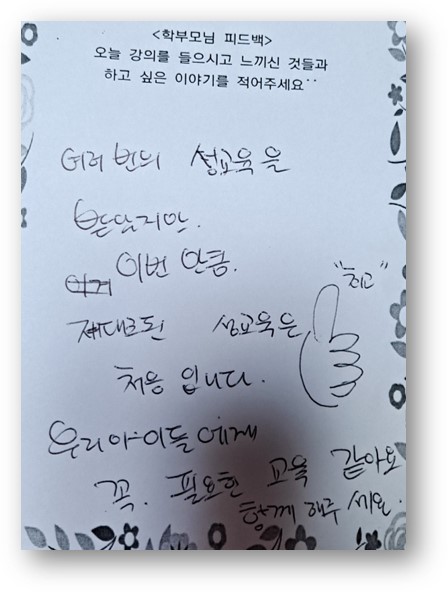 <학부모님 피드백>
오늘 강의를 들으시고 느끼신 것들과
하고 싶은 이야기를 적어주세요^^
여러 번의 성교육을
받았지만.
이번 만큼.
"최고"
제대로된 성교육은
처음 입니다.
우리아이들에게
꼭. 필요한 교육 같아요
함께 해주세요.